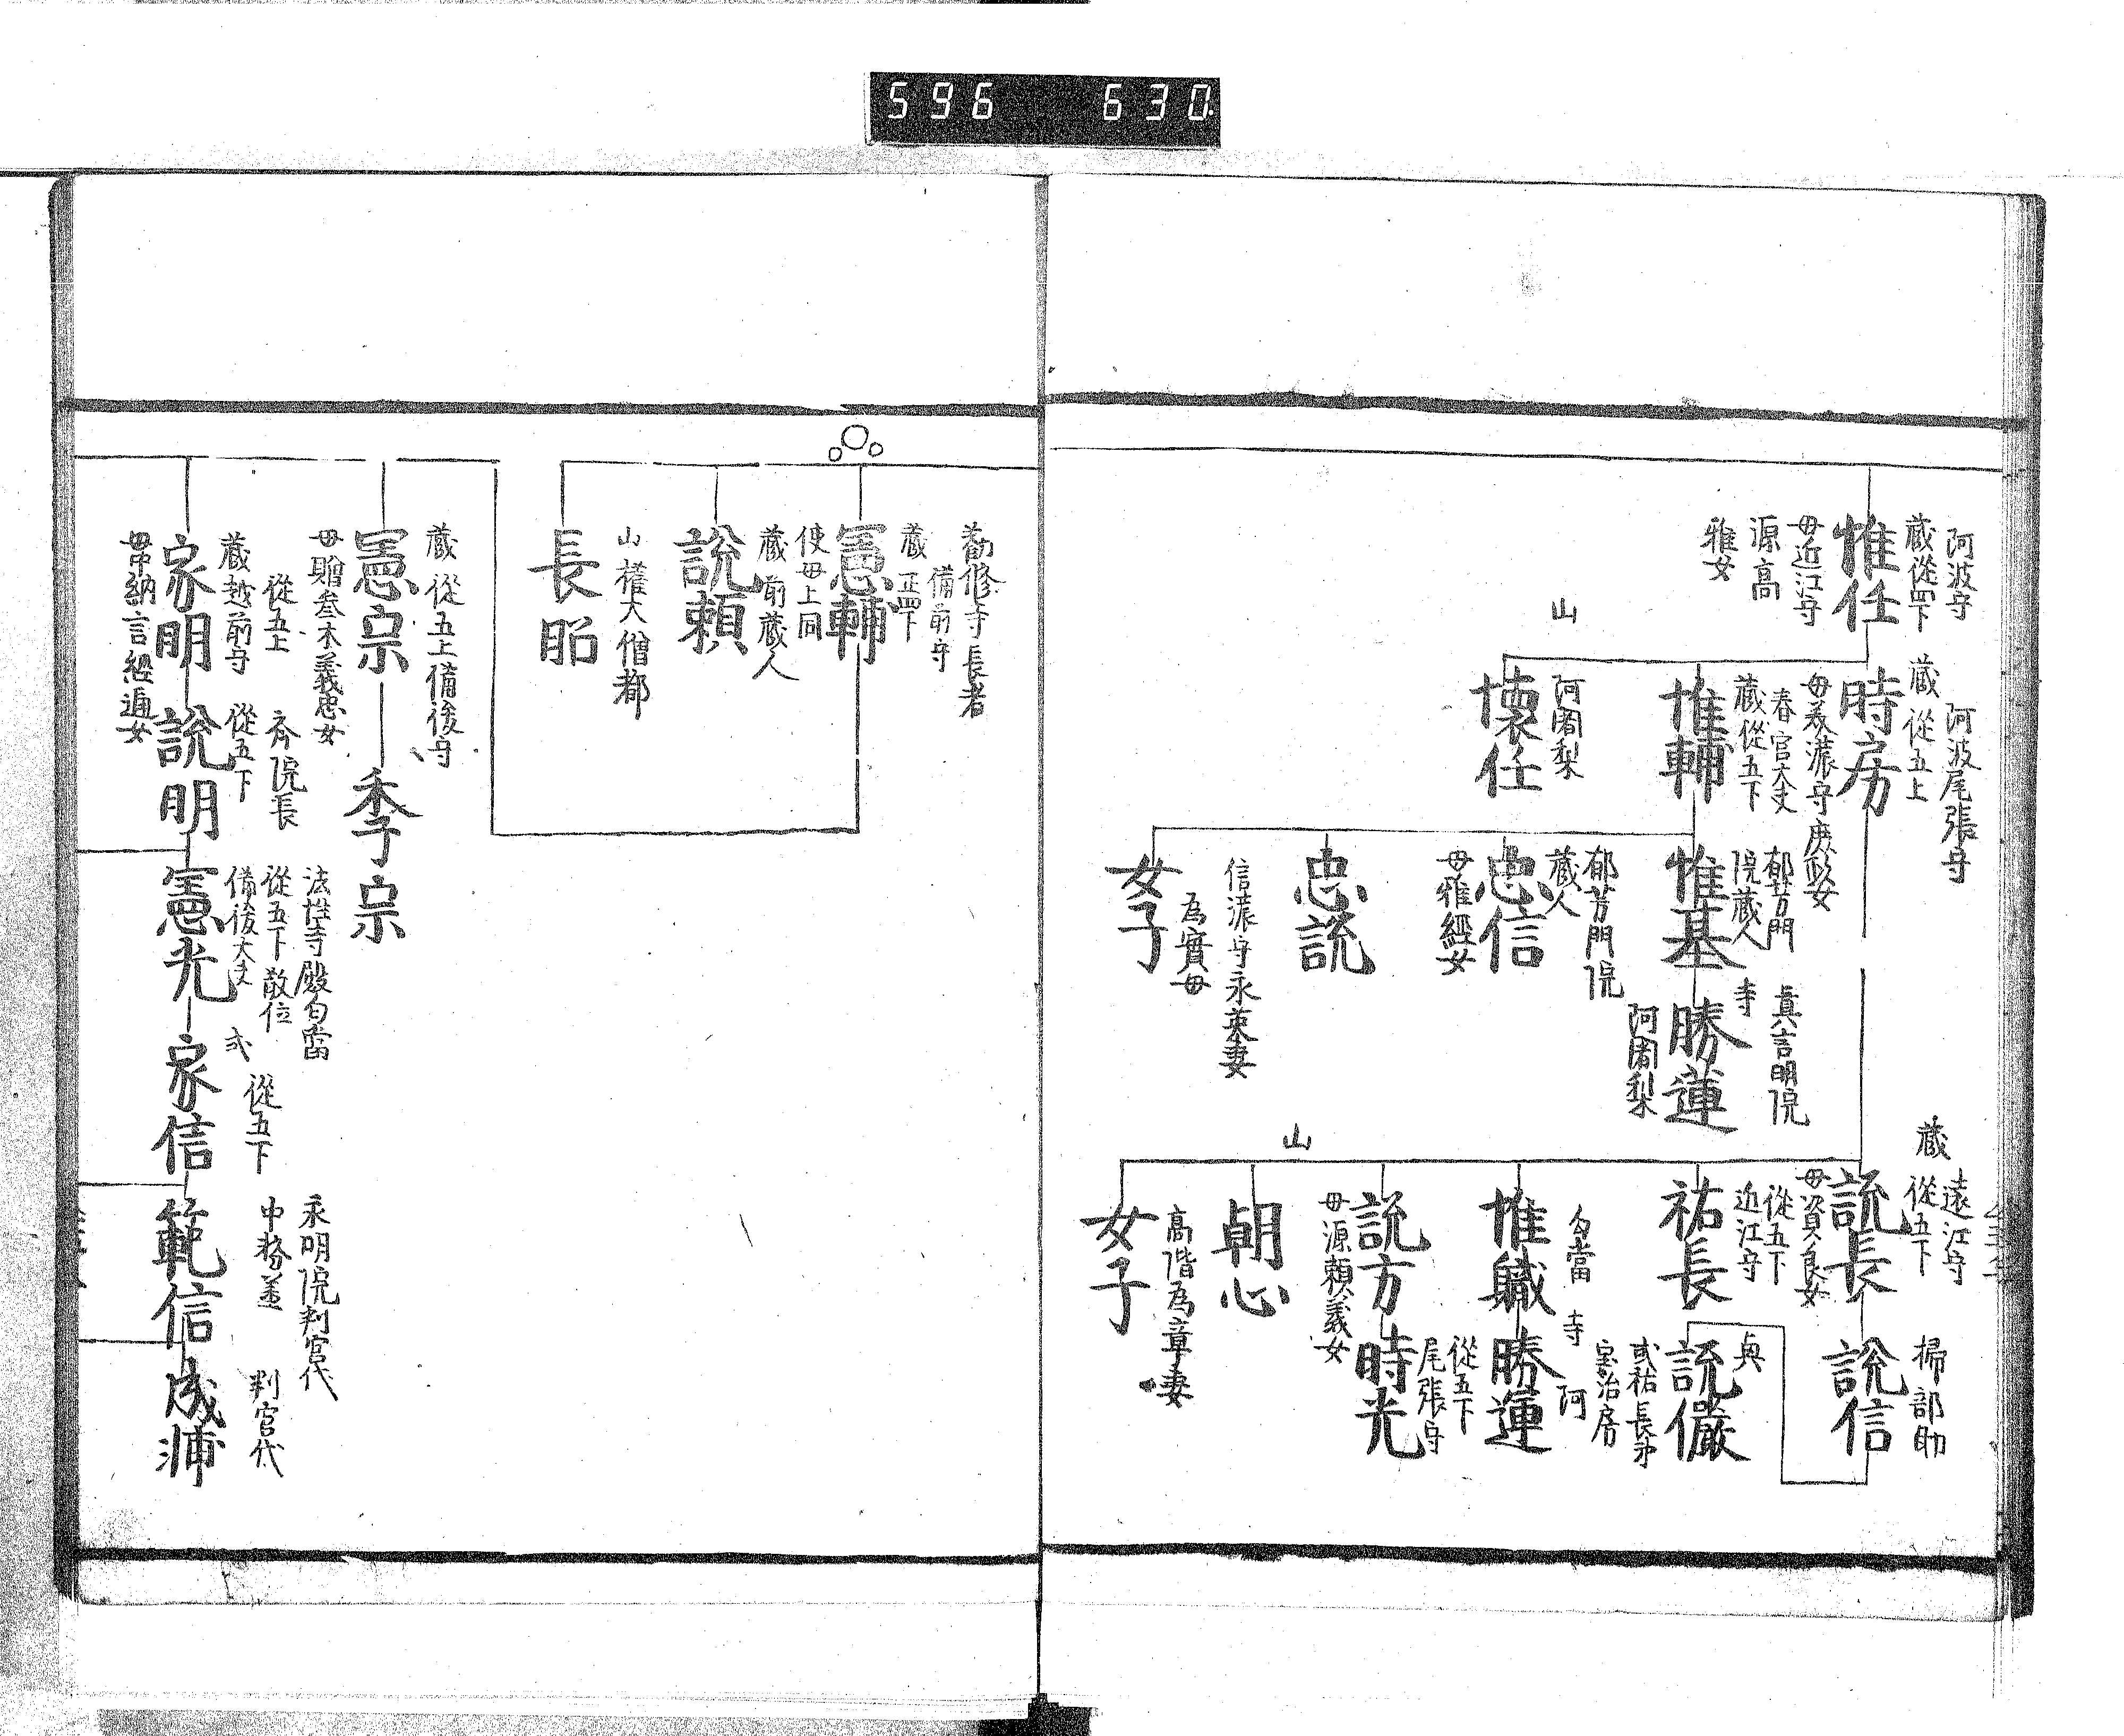 596 630
阿波守
蔵従四下
惟任
母近江守
源高
雅女
阿波尾張守
蔵 従五上
時房
母美濃守
春宮大夫
蔵従五下
惟輔
山
阿闍梨
懐任
郁芳門
院蔵人
惟基
真言明院
寺
勝蓮
阿闍梨
郁芳門院
蔵人
忠信
母雅經女
忠説
信濃守永業妻
為實母
女子
遠江守
蔵 従五下
説長
母資良女
掃部助
説信
従五下
近江守
祐長
與
説儼
或祐長弟
寺
阿
勝運
説方
母源頼義女
従五下
尾張守
時光
山
朝心
高階為章妻
女子
勧修寺長者
備前守
蔵 正四下
憲輔
使母上同
蔵 前蔵人
説頼
山 権大僧都
長昭
蔵 従五上 備後守
憲宗
母贈参木義忠女
季宗
従五上
蔵越前守
家明
斎院長
従五下
説明
従五下散位
備後大夫
憲光
従五下
家信
永明院判官代
範信
判官代